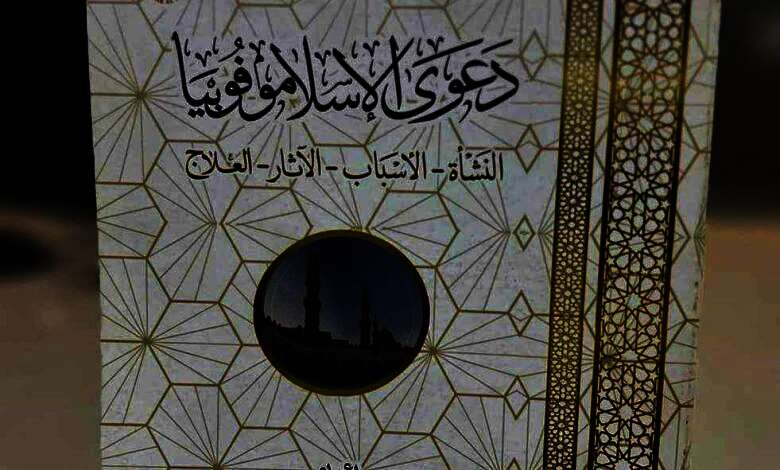 دَعوَى الإسلاموفُوبيَا
النَشْأة - الأسْبَاب - الآثار - العِلاج